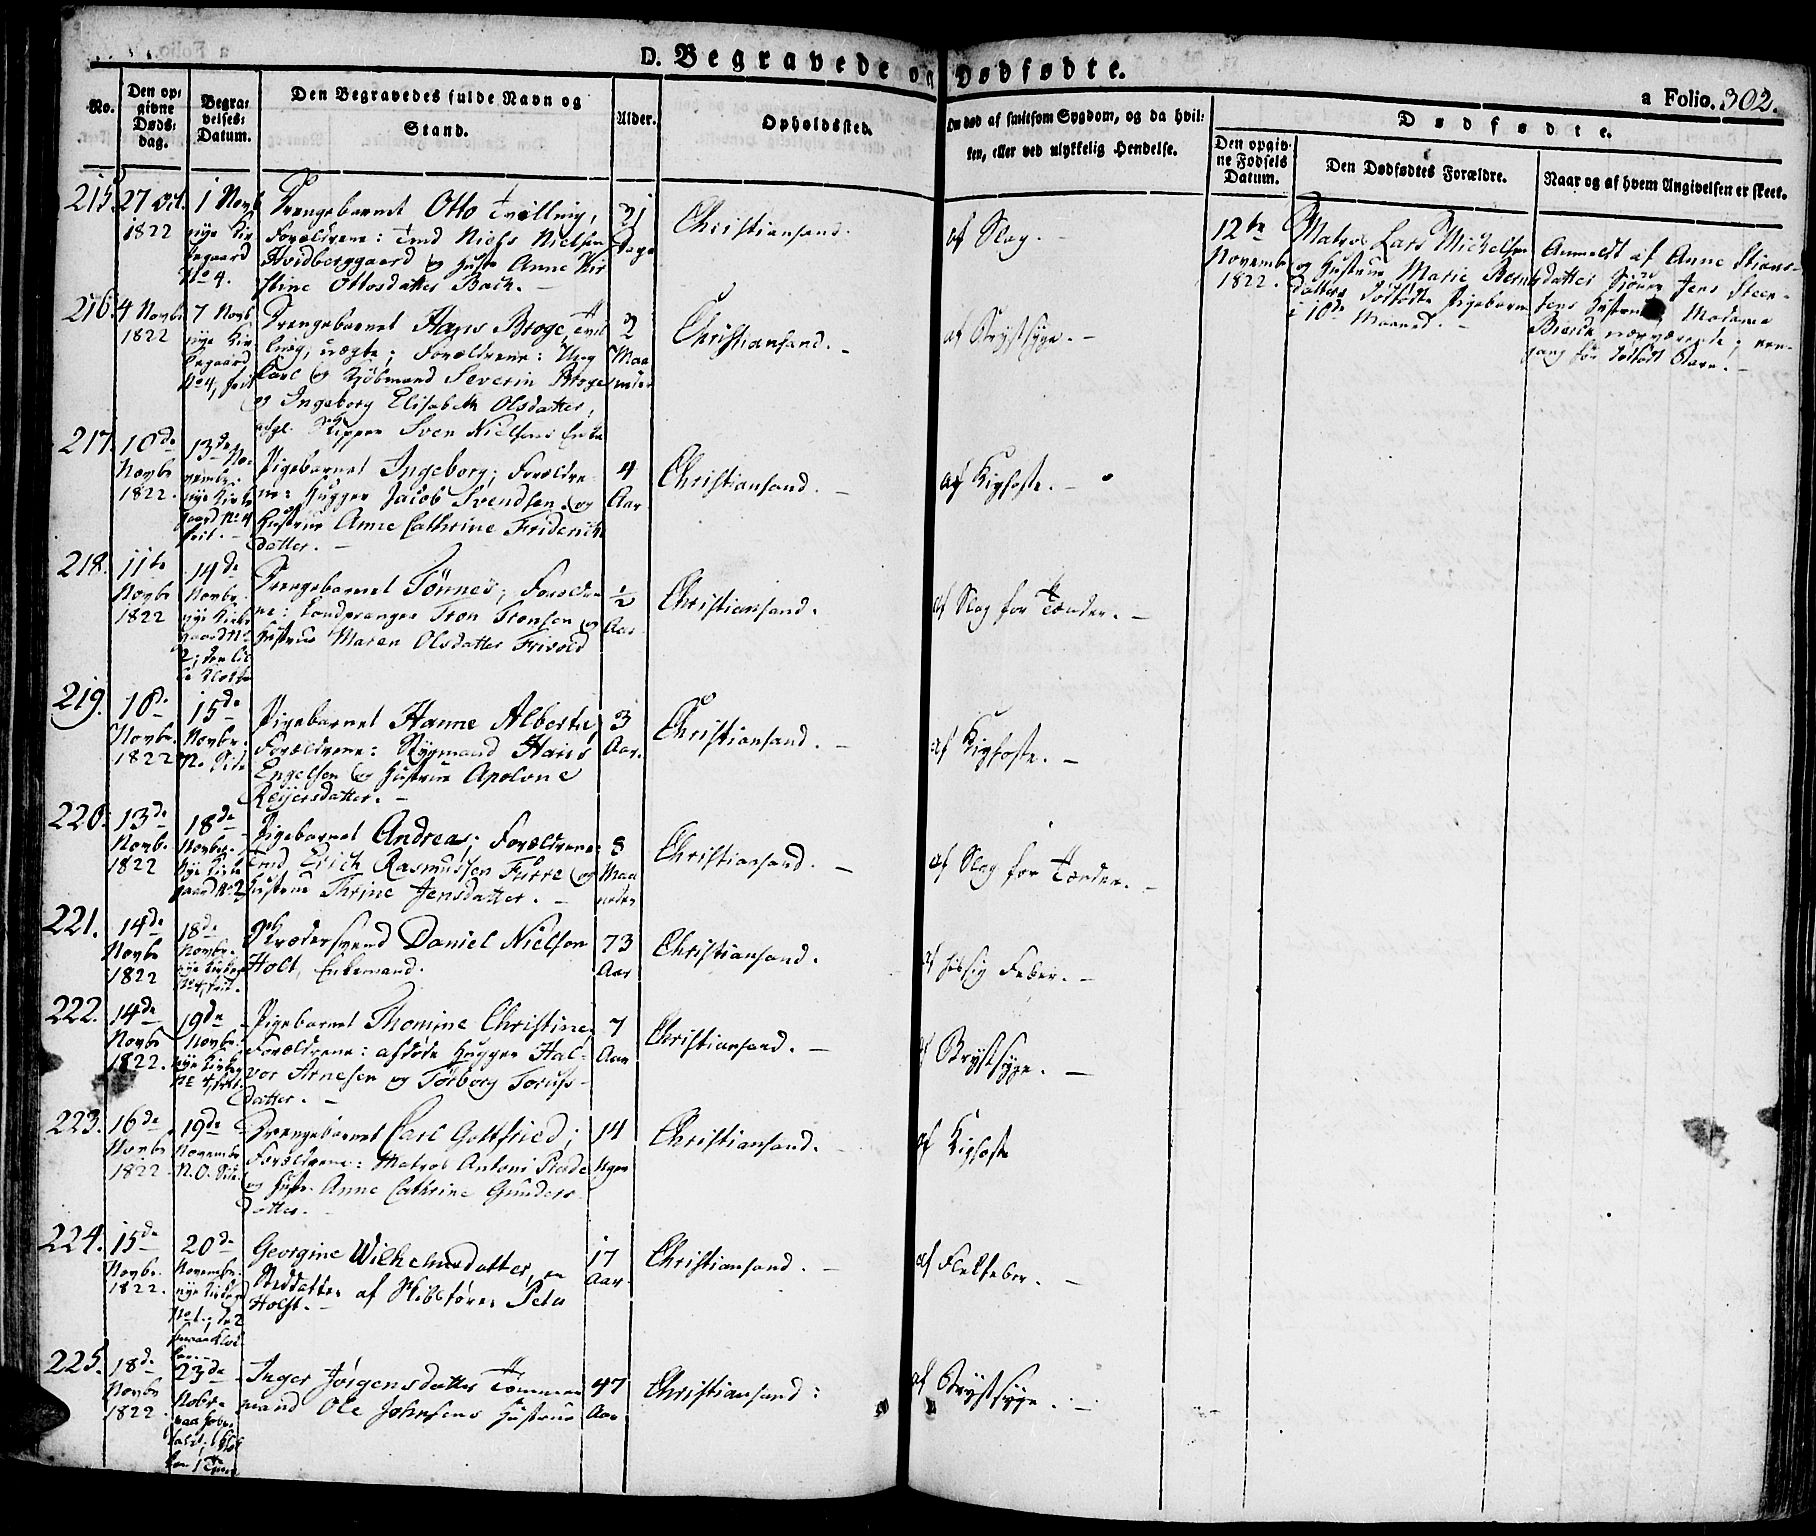 D. Begravede og Dødfødte.
a Folio. 302.
No.
Den op-
givne
Døds-
dag.
Begra-
velses-
Datum.
Den Begravedes fulde Navn og
Stand.
Alder.
Opholdssted.
Om død af smitsom Sygdom, og da hvil-
ken, eller ved ulykkelig Hendelse.
Dødfødte.
Den opgiv-
ne Fødsels
Datum.
Den Dødfødtes Forældre.
Naar og af hvem Angivelsen er skeet.
215. 27 Oct.
1822
1 Novb
nye Kir
kegaard
No 4.
Drengebarnet Otto Tvilling,
Forældrene: Niels Nielsen
Hvidberggaard og Hustr. Anne Kir
stine Ottosdatter Bach. -
21
Dage
Christiansand.
af Slag. -
12te
Novembr
1822.
Matros Lars Michelsen
og Hustrue Marie Bernts
datters dödfödte Pigebarn
i 10de Maaned. -
Anmeldt af Anne Stians-
datter
Jens Steen-
sens Hustrue, Madame
nærværende;
gang for dödfödt Barn. -
216. 4 Novbr.
1822
7 Novb
nye Kir
kegaard
No 4, frit
Drengebarnet Hans Broge, Tvil
ling, uægte; Forældrene: Ung
karl og Kjöbmand Severin Broge
og Ingeborg Elisabeth Olsdatter,
afg. Skipper Sven Nielsens Enke
2
Maa
neder
Christiansand. -
af Brystsyge. -
217. 10de
Novbr
1822.
13de No-
vembr.
nye Kirke
gaard No 4
frit. -
Pigebarnet Ingeborg; Forældre-
ne: Hugger Jacob Svendsen og
Hustrue Anne Cathrine Friderich
datter. -
4
Aar
Christiansand. -
af Kighoste. -
218. 11te
Novbr
1822
14de
Novbr.
nye Kirke
gaard No
2, den lil
le Klokke
Drengebarnet Tönnes; Foreldre
ne: Landpranger Tron Tronsen og
Hustrue Maren Olsdatter Frivold
1/2
Aar
Christiansand.
af Slag for Tænder. -
219. 10de
Novbr.
1822
15de
Novbr.
Pigebarnet Hanne Alberte;
Forældrene: Hans
Engelsen og Hustrue Apolone
Reijersdatter. -
3
Aar.
Christiansand. -
af Kighoste. -
220. 13de
Novbr.
1822
18de
Novbr.
Nye Kirke
gaard No 2
Pigebarnet Andrea; Forældrene:
Erich Rasmussen Furre og
Hustrue Thrine Jensdatter. -
8
Maa
neder
Christiansand. -
af Slag for Tænder. -
221. 14de
Novbr
1822
18de
Novbr.
nye Kirkeg
No 4, frit.
Skrædersvend Daniel Nielsen
Holt, Enkemand.
73
Aar
Christiansand.
af hidsig Feber. -
222. 14de
Novbr
1822.
19de
Novbr.
nye Kirkeg
No 4, frit.
Pigebarnet Thomine Christine;
Forældrene: afdöde Hugger Hal-
vor Arnesen og Törborg Torus-
datter. -
7
Aar
Christiansand. -
af Brystsyge. -
223. 16de
Novbr
1822
19de
Novembr
Drengebarnet Carl Gottfried;
Forældrene: Matros Antoni Rode
og Hustr. Anne Cathrine Gunders
datter.
14
Uger
Christiansand.
af Kighoste
224. 15de
Novbr.
1822.
20de
Novembr.
nye Kirkeg
No 1,
Georgine Wilhelmsdatter, en
Steddatter af Peter
Holst. -
17
Aar.
Christiansand. -
af Flekfeber. -
225. 18de
Novbr
1822
23de
Novbr.
Inger Jörgensdatter Tömmer
mand Ole Johnsens Hustrue
47
Aar
Christiansand:
af Brystsyge. -